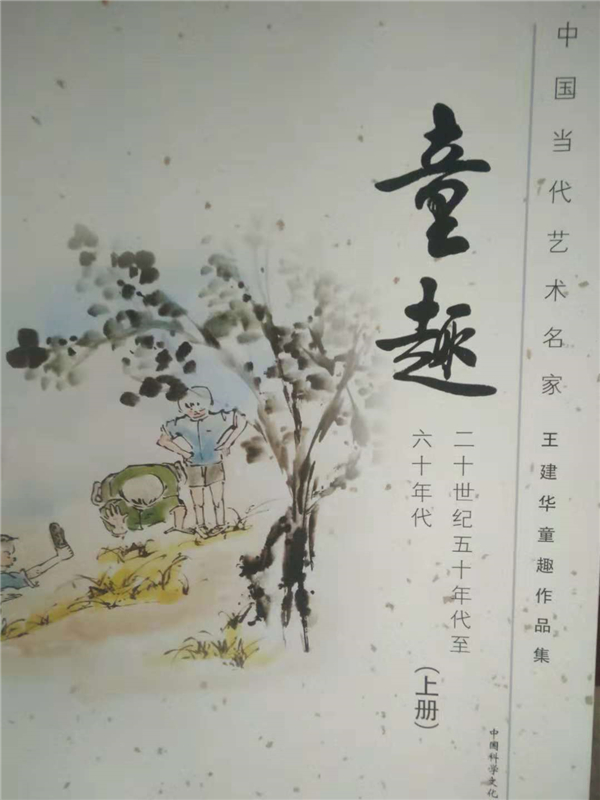 中国当代艺术名家
王建华童趣作品集
童趣
二十世纪五十年代至
六十年代
(上册)
中国科学文化